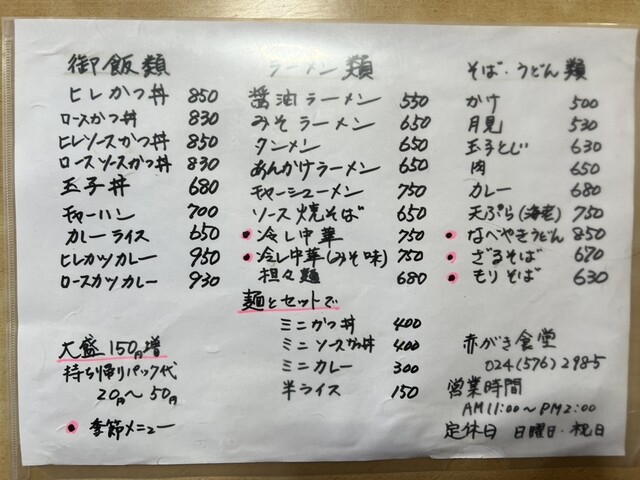 御飯類
ヒレかつ丼 850
ロースかつ丼 830
ヒレソースかつ丼 850
ロースソースかつ丼 830
玉子丼 680
チャーハン 700
カレーライス 650
ヒレカツカレー 950
ロースカツカレー 930
大盛150円増
持ち帰りパック代
20円〜50円
● 季節メニュー
ラーメン類
醤油ラーメン 550
みそラーメン 650
タンメン 650
あんかけラーメン 650
チャーシューメン 750
ソース焼そば 650
● 冷し中華 750
● 冷し中華(みそ味) 750
担々麺 680
麺とセットで
ミニかつ丼 400
ミニソースかつ丼 400
ミニカレー 300
半ライス 150
そば・うどん類
かけ 500
月見 530
玉子とじ 630
肉 650
カレー 680
天ぷら(海老) 750
● なべやきうどん 850
● ざるそば 670
● もりそば 630
赤がき食堂
024(576)2985
営業時間
AM11:00〜PM2:00
定休日 日曜日・祝日